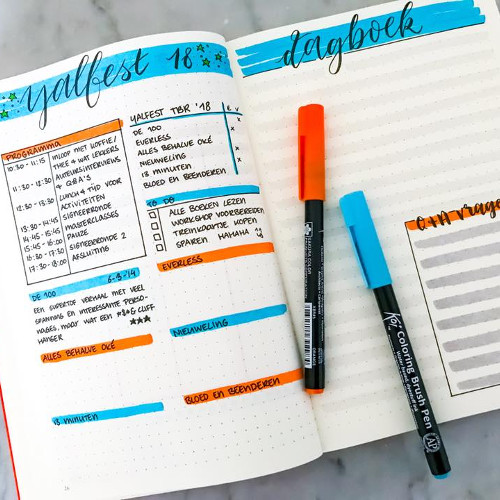 Yalfest 18
PROGRAMMA
10:30 - 11:15 INLOOP MET KOFFIE/
THEE & WAT LEKKERS
11:30 - 12:30 AUTEURSINTERVIEWS
& Q&A'S
12:30 - 13:30 LUNCH & TIJD VOOR
ACTIVITEITEN
13:30 - 14:45 SIGNEERRONDE
14:45 - 15:45 MASTERCLASSES
15:45 - 16:00 PAUZE
16:30 - 17:30 SIGNEERRONDE 2
17:30 - 18:00 AFSLUITING
YALFEST TBR '18 E V
DE 100
EVERLESS
ALLES BEHALVE OKÉ
NIEUWELING
13 MINUTEN
BLOED EN BEENDEREN
TO DO
ALLE BOEKEN LEZEN
WORKSHOP VOORBEREIDEN
TREINKAARTJE KOPEN
SPAREN HAHAHA
DE 100
EEN SUPERTOF VERHAAL MET VEEL
SPANNING EN INTERESSANTE PERSO-
NAGES, MAAR WAT EEN #$&G CLIFF
HANGER ★★★
EVERLESS
ALLES BEHALVE OKÉ
NIEUWELING
13 MINUTEN
BLOED EN BEENDEREN
dagboek
Q&A vragen
SAKURA COLOR
Koi
Coloring Brush Pen
AP